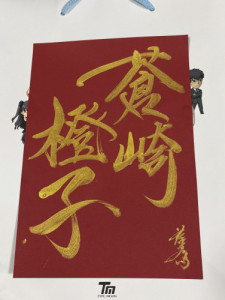 蒼崎
橙子
TM
TYPE-MOON